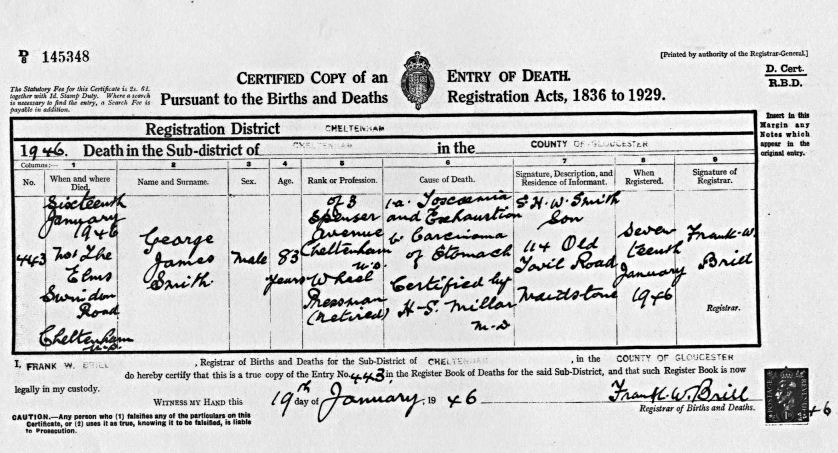 D/8 145348
[Printed by authority of the Registrar-General.]
The Statutory Fee for this Certificate is 2s. 6d.
together with 1d. Stamp Duty. Where a search
is necessary to find the entry, a Search Fee is
payable in addition.
CERTIFIED COPY of an ENTRY OF DEATH.
Pursuant to the Births and Deaths Registration Acts, 1836 to 1929.
D. Cert.
R.B.D.
Registration District CHELTENHAM
1946. Death in the Sub-district of CHELTENHAM in the COUNTY OF GLOUCESTER
Insert in this
Margin any
Notes which
appear in the
original entry.
Columns:— 1 2 3 4 5 6 7 8 9
No. When and where Died. Name and Surname. Sex. Age. Rank or Profession. Cause of Death. Signature, Description, and Residence of Informant. When Registered. Signature of Registrar.
443
Sixteenth
January
1946
The
Elms
Swindon
Road
Cheltenham
U.D.
George
James
Smith
Male
83
years
of 3
Spenser
Avenue
Cheltenham
U.D.
Wheel
Pressman
(Retired)
1.a. Toxcaemia
and Exhaustion
b. Carcinoma
of Stomach
Certified by
H. S. Millar
M.D
S. H. W. Smith
Son
114 Old
Tovil Road
Maidstone
Seven
teenth
January
1946
Frank. W.
Brill
Registrar.
I, FRANK W. BRILL, Registrar of Births and Deaths for the Sub-District of CHELTENHAM, in the COUNTY OF GLOUCESTER
do hereby certify that this is a true copy of the Entry No. 443, in the Register Book of Deaths for the said Sub-District, and that such Register Book is now
legally in my custody.
WITNESS MY HAND this 19th day of January, 1946
Frank. W. Brill
Registrar of Births and Deaths.
CAUTION.—Any person who (1) falsifies any of the particulars on this
Certificate, or (2) uses it as true, knowing it to be falsified, is liable
to Prosecution.